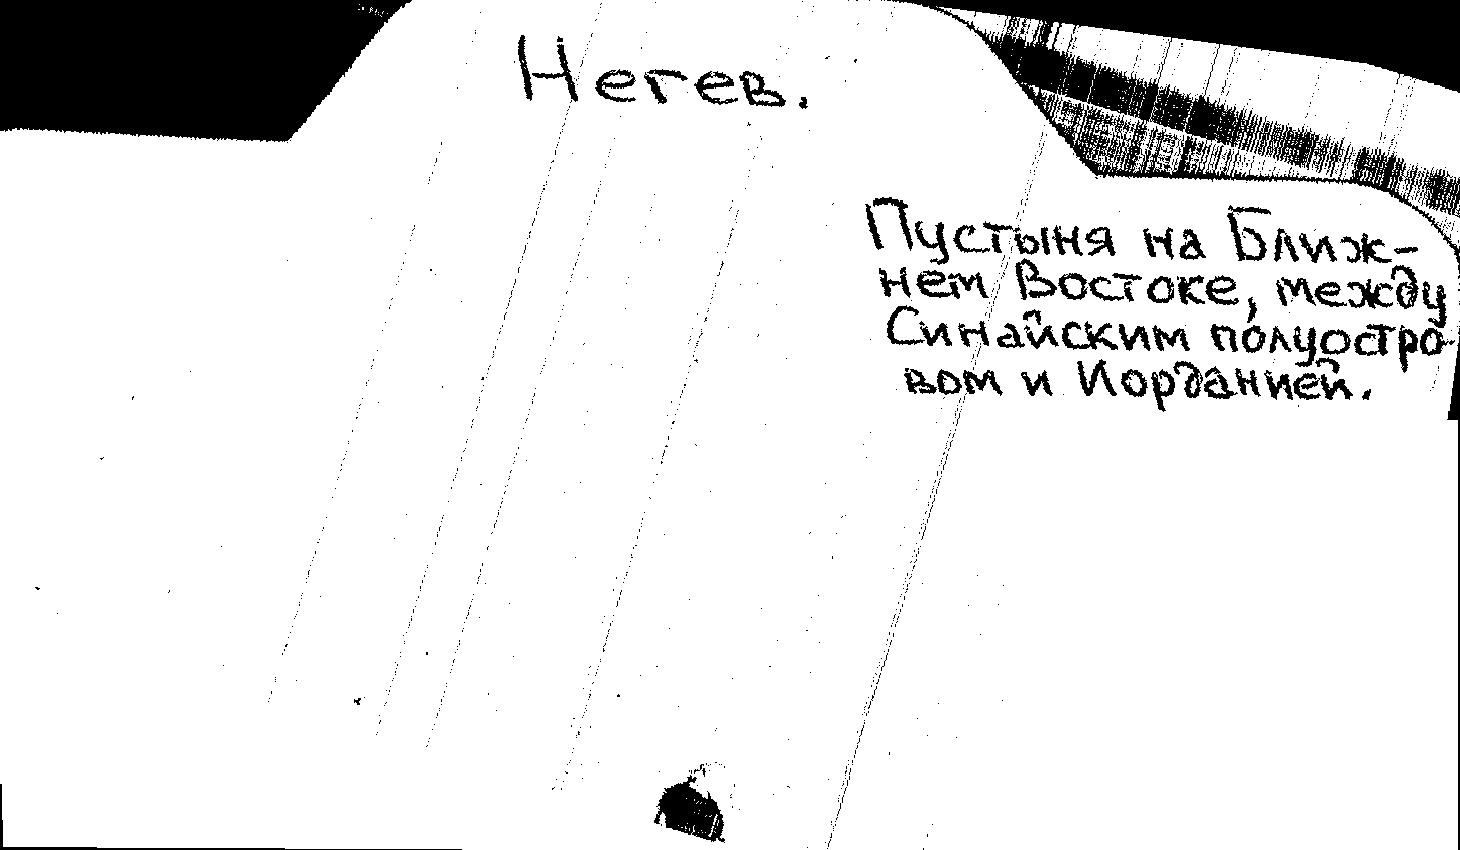 Негев.
Пустыня на Ближ-
нем Востоке, между
Синайским полуостро-
вом и Иорданией.